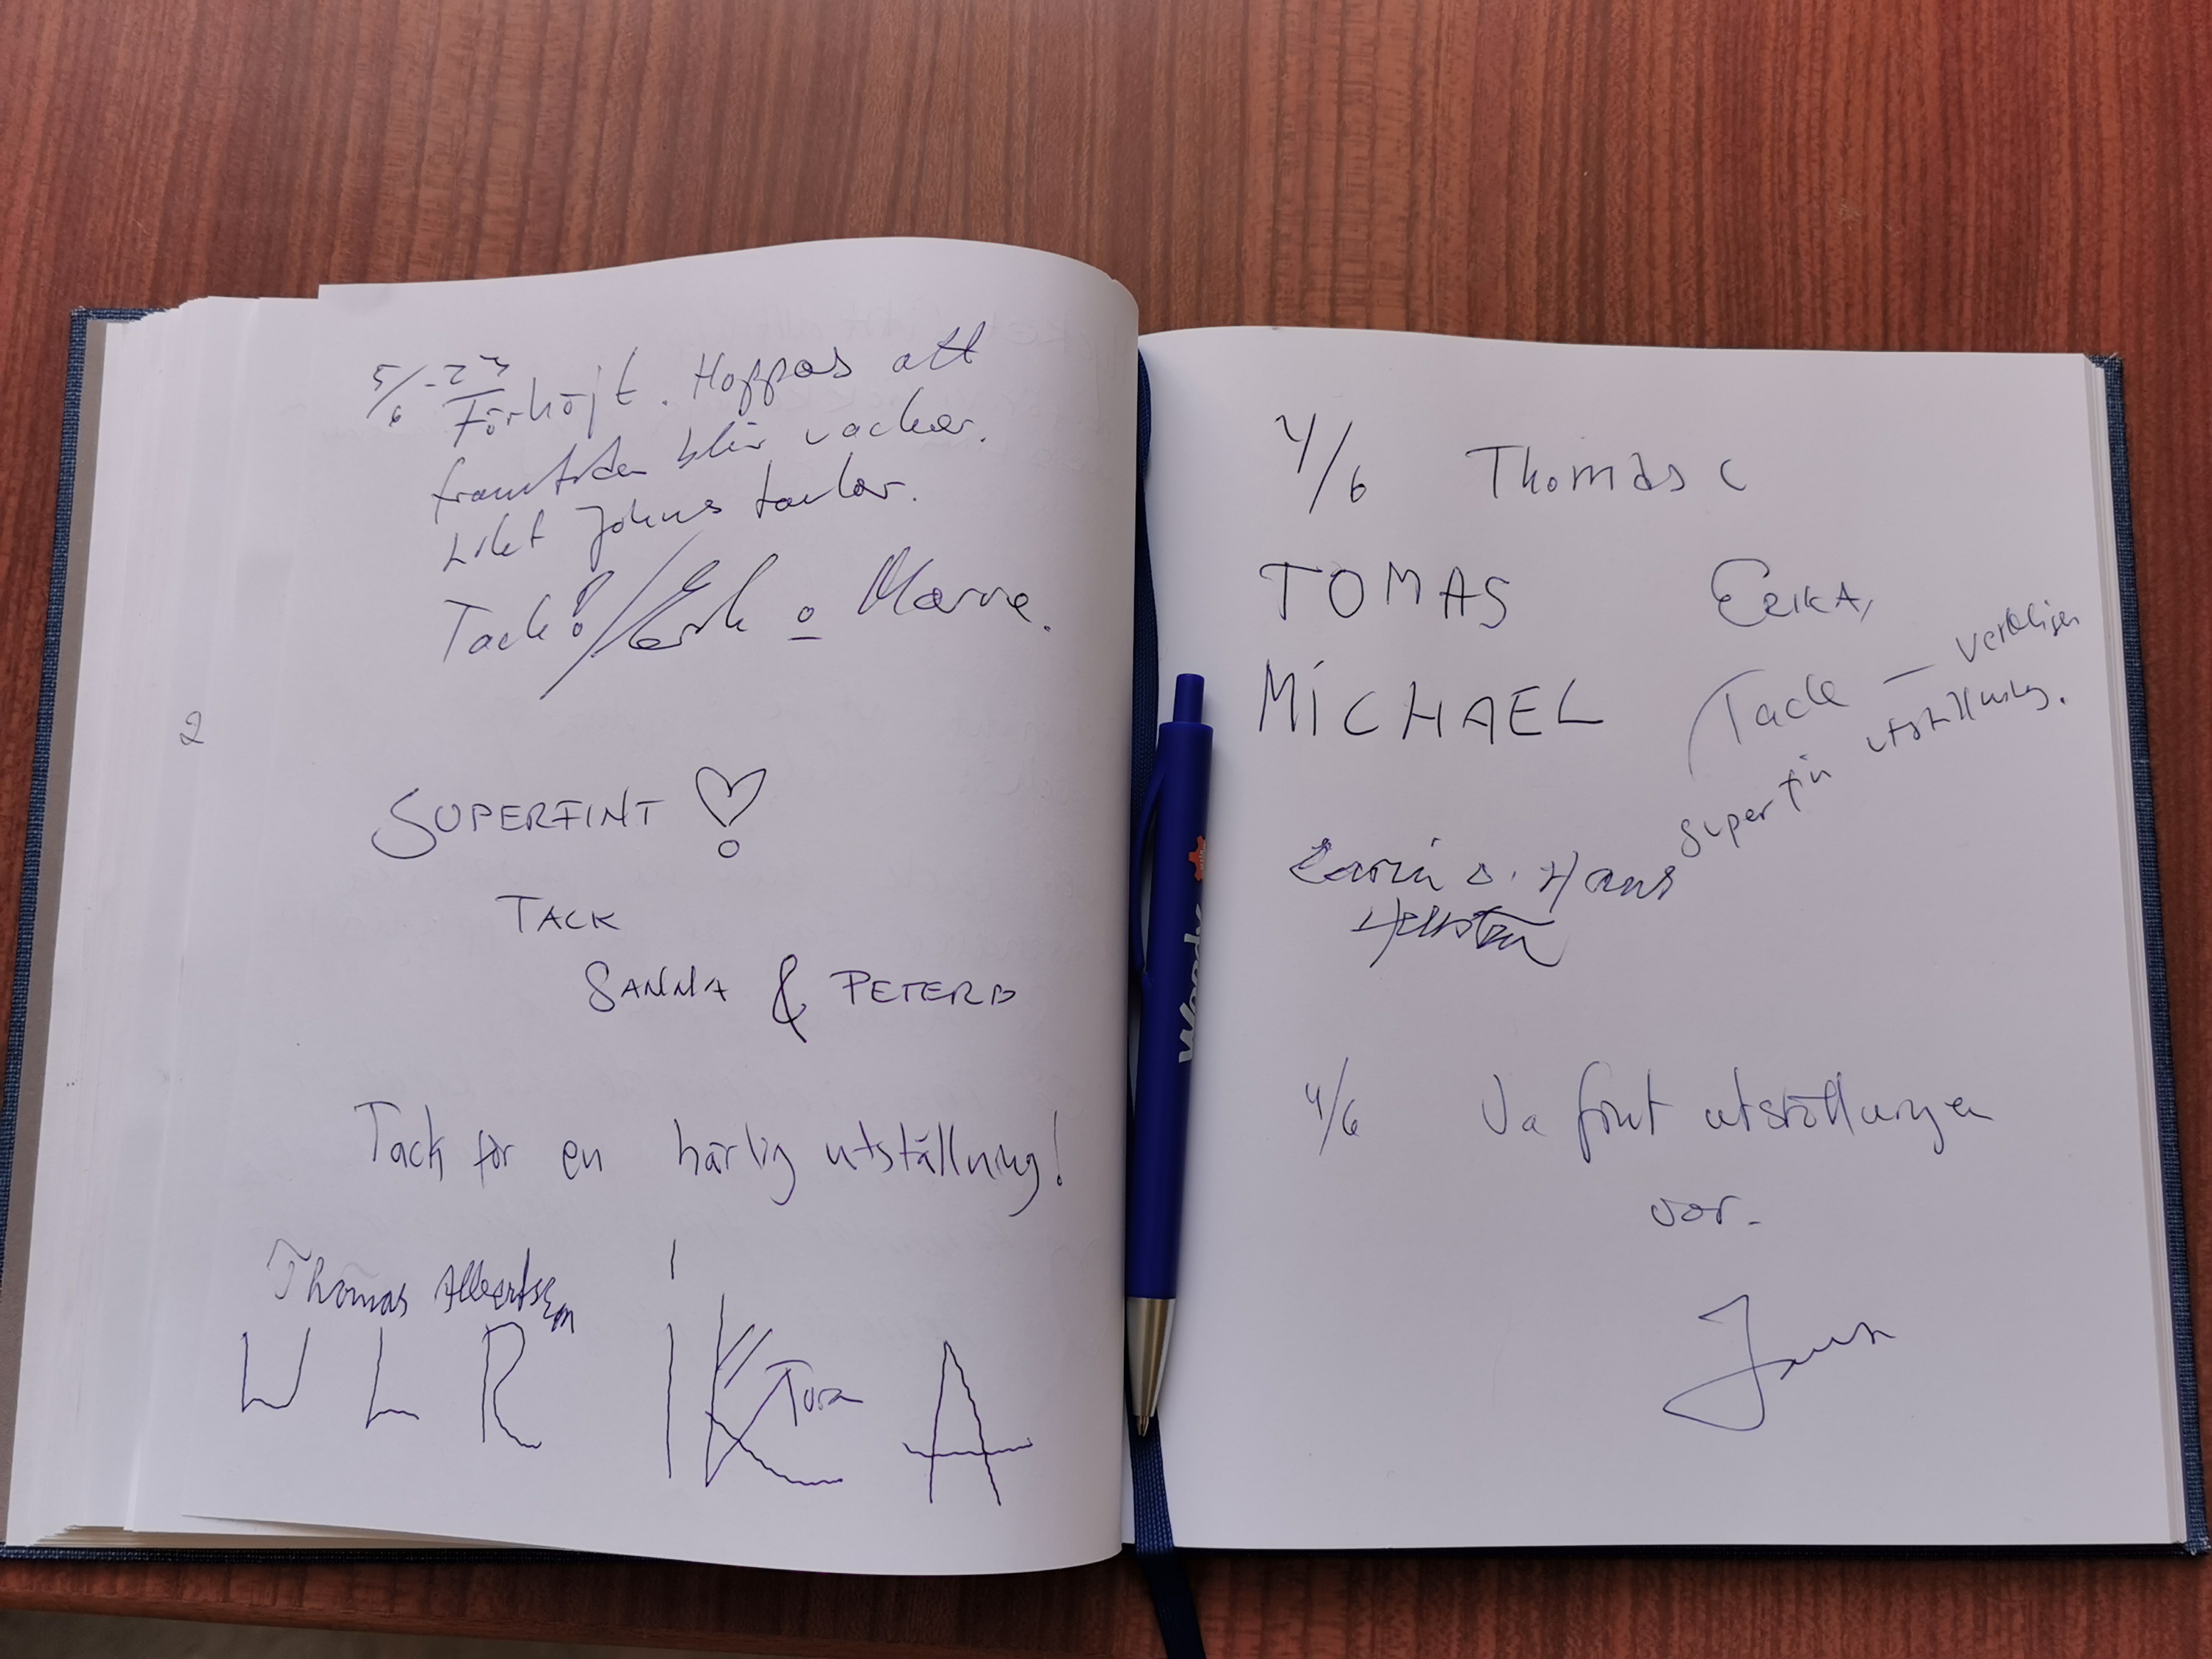 5/6 -23
Förhöjt. Hoppas att
framtiden blir vacker.
Likt Johns tavlor.
Tack! / o
2
SUPERFINT
TACK
SANNA & PETER
Tack för en härlig utställning!
Thomas Albertsson
U L R I K A
Tora
4/6 Thomas C
TOMAS ERIKA,
MICHAEL Tack – verkligen
superfin utställning.
Karin o. Hans
Hellström
4/6 Va fint utställningen
var.
Woody